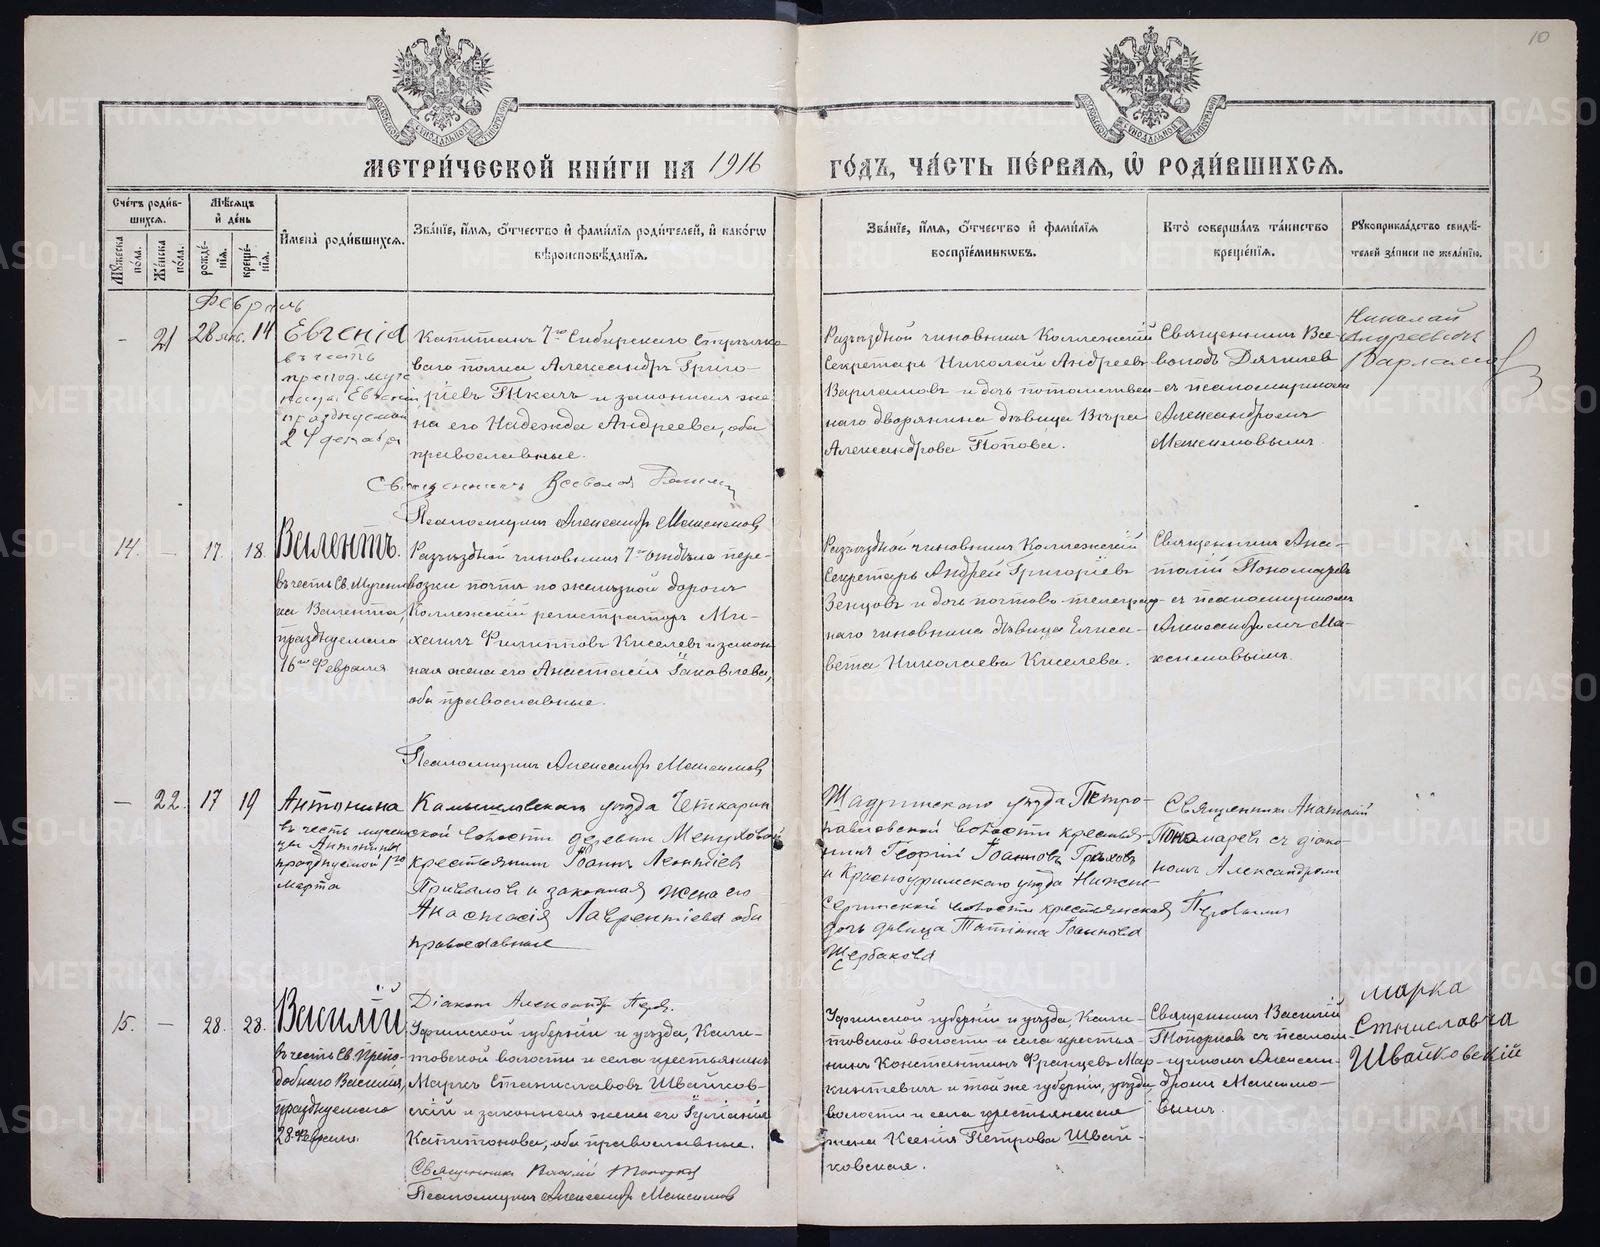 10
МЕТРИ́ЧЕСКОЙ КНИ́ГИ НА 1916 ГО́ДЪ, ЧА́СТЬ ПЕ́РВАЯ, Ѡ РОДИ́ВШИХСЯ.
Сче́тъ роди́в-
шихся.
Му́жеска по́ла.
Же́нска по́ла.
Мѣ́сяцъ
и де́нь
рожде́-
нія.
креще́-
нія.
И́мена̀ роди́вшихся.
Зва́ніе, и́мя, о́тчество и фами́лія роди́телей, и како́гѡ
вѣроисповѣ́данія.
Зва́ніе, и́мя, о́тчество и фами́лія
воспріе́мникѡвъ.
Кто̀ соверша́лъ та́инство
креще́нія.
Рꙋкоприкла́дство свидѣ́-
телей за́писи по жела́нію.
Февраль
-
21
28 янв.
14
Евгенія
въ честь
препод. муче
ницы Евгеніи
празднуемой
24 декабря
Капитанъ 7го Сибирскаго Стрѣлко
ваго полка Александръ Григо-
ріевъ Ткачъ и законная же
на его Надежда Андреева, оба
православные.
Священникъ Всеволод
Псаломщикъ Александръ Максимовъ
Разъѣздной чиновникъ Коллежскій
Секретарь Николай Андреевъ
Варламовъ и дочь потомствен-
наго дворянина дѣвица Вѣра
Александрова Попова.
Священникъ Все
володъ
съ псаломщикомъ
Александромъ
Максимовымъ.
Николай
Андреевичъ
Варламов
14.
-
17.
18.
Валентъ.
въ честь Св. Мучени
ка Валента,
празднуемаго
16го Февраля
Разъѣздной чиновникъ 7го отдѣла пере-
возки почтъ по желѣзной дорогѣ
Коллежскій регистраторъ Ми-
хаилъ Филипповъ Киселевъ и закон
ная жена его Анастасія Іаковлева,
оба православные.
Псаломщикъ Александръ Максимовъ
Разъѣздной чиновникъ Коллежскій
Секретарь Андрей Григоріевъ
Венцовъ и дочь почтово-телеграф-
наго чиновника дѣвица Елиса-
вета Николаева Киселева.
Священникъ Ана-
толій Пономаревъ
съ псаломщикомъ
Александромъ Ма-
ксимовымъ.
-
22.
17
19
Антонина
въ честь мучени
цы Антонины
празднуемой 1го
марта
Камышловскаго уѣзда Четкарин
ской волости деревни
крестьянинъ Іоаннъ Леонтіев
Привалов и законная жена его
Анастасія Лаврентіева оба
православные
Діаконъ Александръ Перв.
Шадринскаго уѣзда Петро-
павловской волости крестья-
нинъ Георгій Іоанновъ Грѣховъ
и Красноуфимскаго уѣзда Нижне-
Сергинской волости крестьянская
дочь дѣвица Татіана Іоаннова
Щербакова
Священникъ Анатолій
Пономаревъ съ діако-
номъ Александромъ
Первымъ
15.
-
28.
28.
Василій
въ честь Св. Препо-
добнаго Василія,
празднуемаго
28 Февраля.
Уфимской губерніи и уѣзда, Кали-
товской волости и села крестьянинъ
Маркъ Станиславовъ Швайков-
скій и законная жена его Іуліанія
Капитонова, оба православные.
Священникъ Василій Топорковъ
Псаломщикъ Александръ Максимовъ
Уфимской губерніи и уѣзда, Кали-
товской волости и села крестья-
нинъ Константинъ Францевъ Мар-
кинтевичъ и той же губерніи, уѣзда,
волости и села крестьянская
жена Ксенія Петрова Швай-
ковская.
Священникъ Василій
Топорковъ съ псалом-
щикомъ Алексан-
дромъ Максимо-
вымъ.
Марка
Станиславча
Швайковскій
METRIKI.GASO-URAL.RU